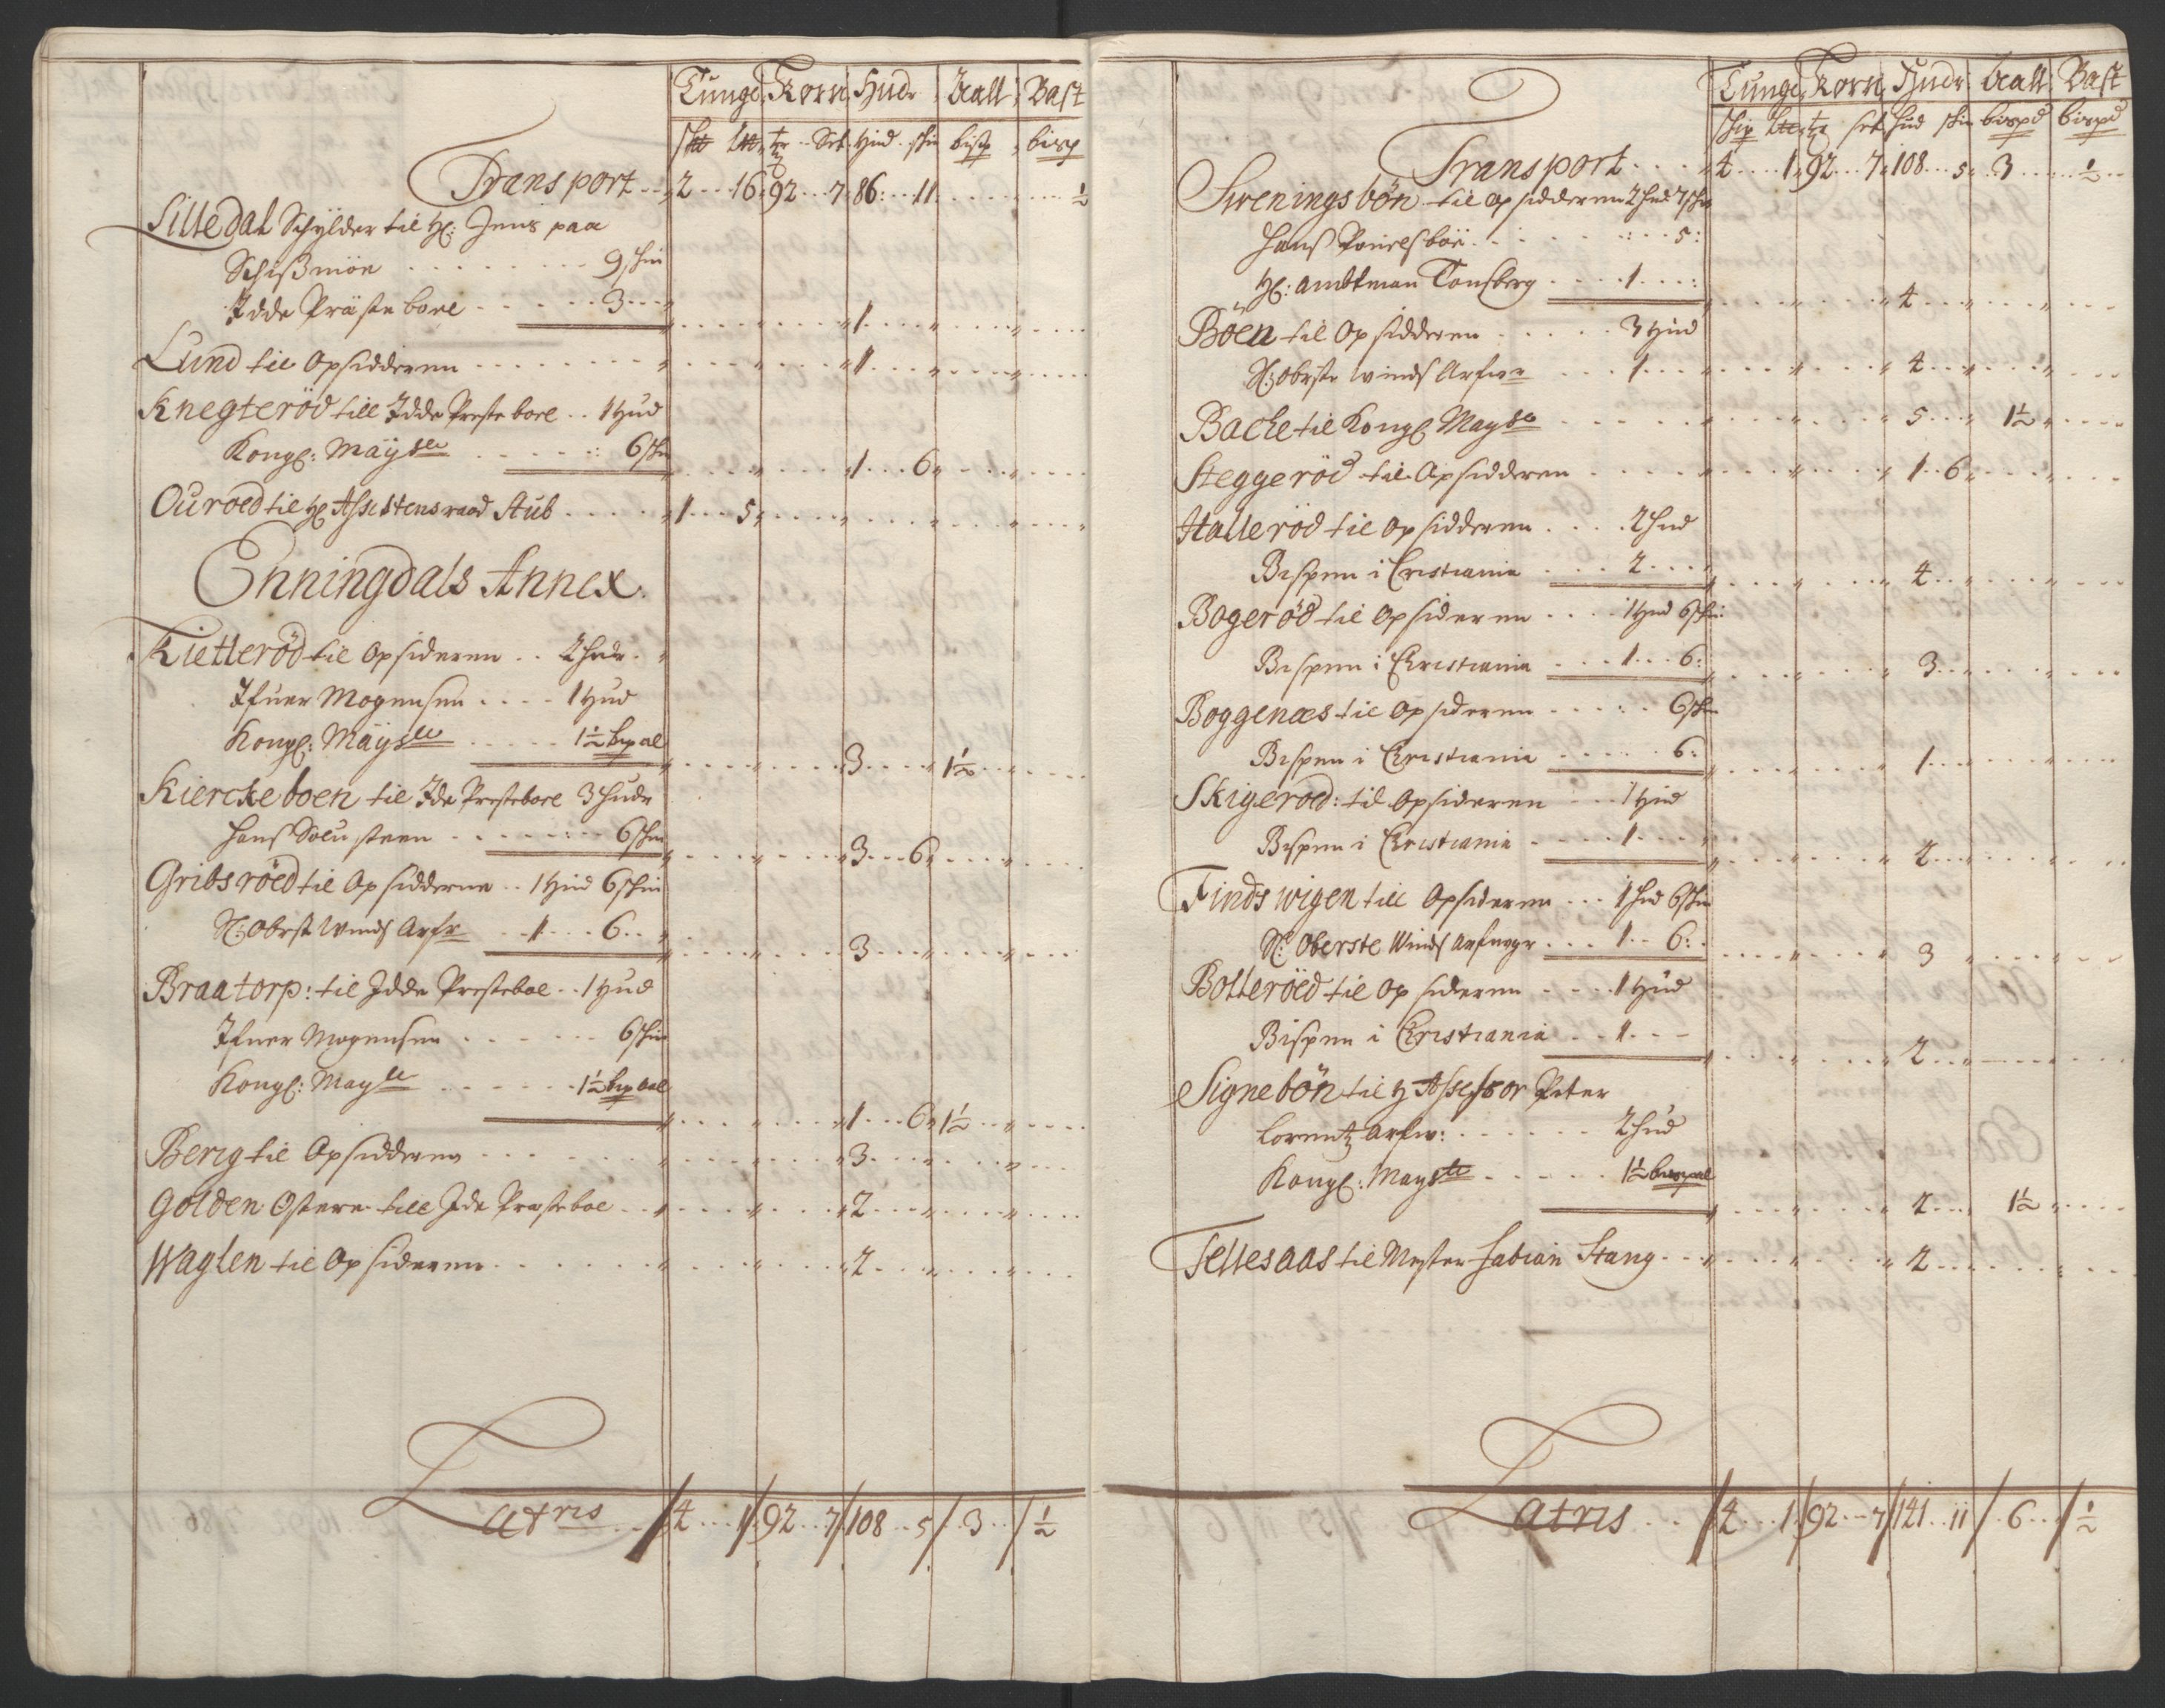 Tunge Korn Hudr Aall Bast
tr Sek Hud skin bisp bisp
Transport 2 16 92 7 86 11 ½
Lilledal Schylder til H: Jens paa
Schißmöe 9 skin
Idde Præste bole 3
1
Lund til Opsidderen 1
Knegteröd till Idde Preste bole 1 Hud
Kongl: Mäyste 6 skin
1 6
Ouroed til H Assistensraad Aub 1 5
Enningdals Annex.
Kietteröd til Opsideren 2 hudr
Ifuer Mogensen 1 Hud
Kongl: Mäyste 1½ bp al
3 1½
Kierckeboen til Ide Prestebole 3 hude
Hans Soelusteen 6 skin
3 6
Gribsröed til Opsidderne 1 Hud 6 skin
S: Obrst Winds Arfr 1 6
3
Braatorp: til Idde Prestebole 1 Hud
Ifuer Mogensen 6 skin
Kongl: Mayst 1½ bp aal
1 6 1½
Berig til Opsidderen 3
Golden Østere till Ide Præstebole 2
Waglen til Opsideren 2
Latris 4 1 92 7 108 5 3 ½
Tunge Korn Hudr Aall Bast
skip tr sek hud skin bispd bispd
Transport 4 1 92 7 108 5 3 ½
Sweningsbön til opsidderen 2 hud 7 skin
Hans Pouelsböe 5
H: Ambtman Tonsberg 1
4
Böen til Opsidderen 3 Hud
S: Obrste Winds Arfwe 1 4
Backe til Kongl Mayst 5 1½
Steggeröd til Opsidderen 1 6
Halleröd til Opsidderen 2 hud
Bispen i Cristiania 2
4
Bogeröd til Opsideren 1 Hud 6 skin
Bispen i Christiania 1 6
3
Boggenæs til Opsideren 6 skin
Bispen i Christiania 6
1
Skigeroed: til Opsideren 1 Hud
Bispen i Christiania 1
2
Findswigen till Opsideren 1 hud 6 skin
S: Oberste Winds Arfinger 1 6
3
Botteröed til Opsideren 1 Hud
Bispen i Christiania 1
2
Signebön til H Assessor Peter
Lorentz Arfw: 2 hud
Kongl: Mayst 1½ bispal
2 1½
Tellesaas til Mester Fabian Stang 2
Latris 4 1 92 7 141 11 6 ½